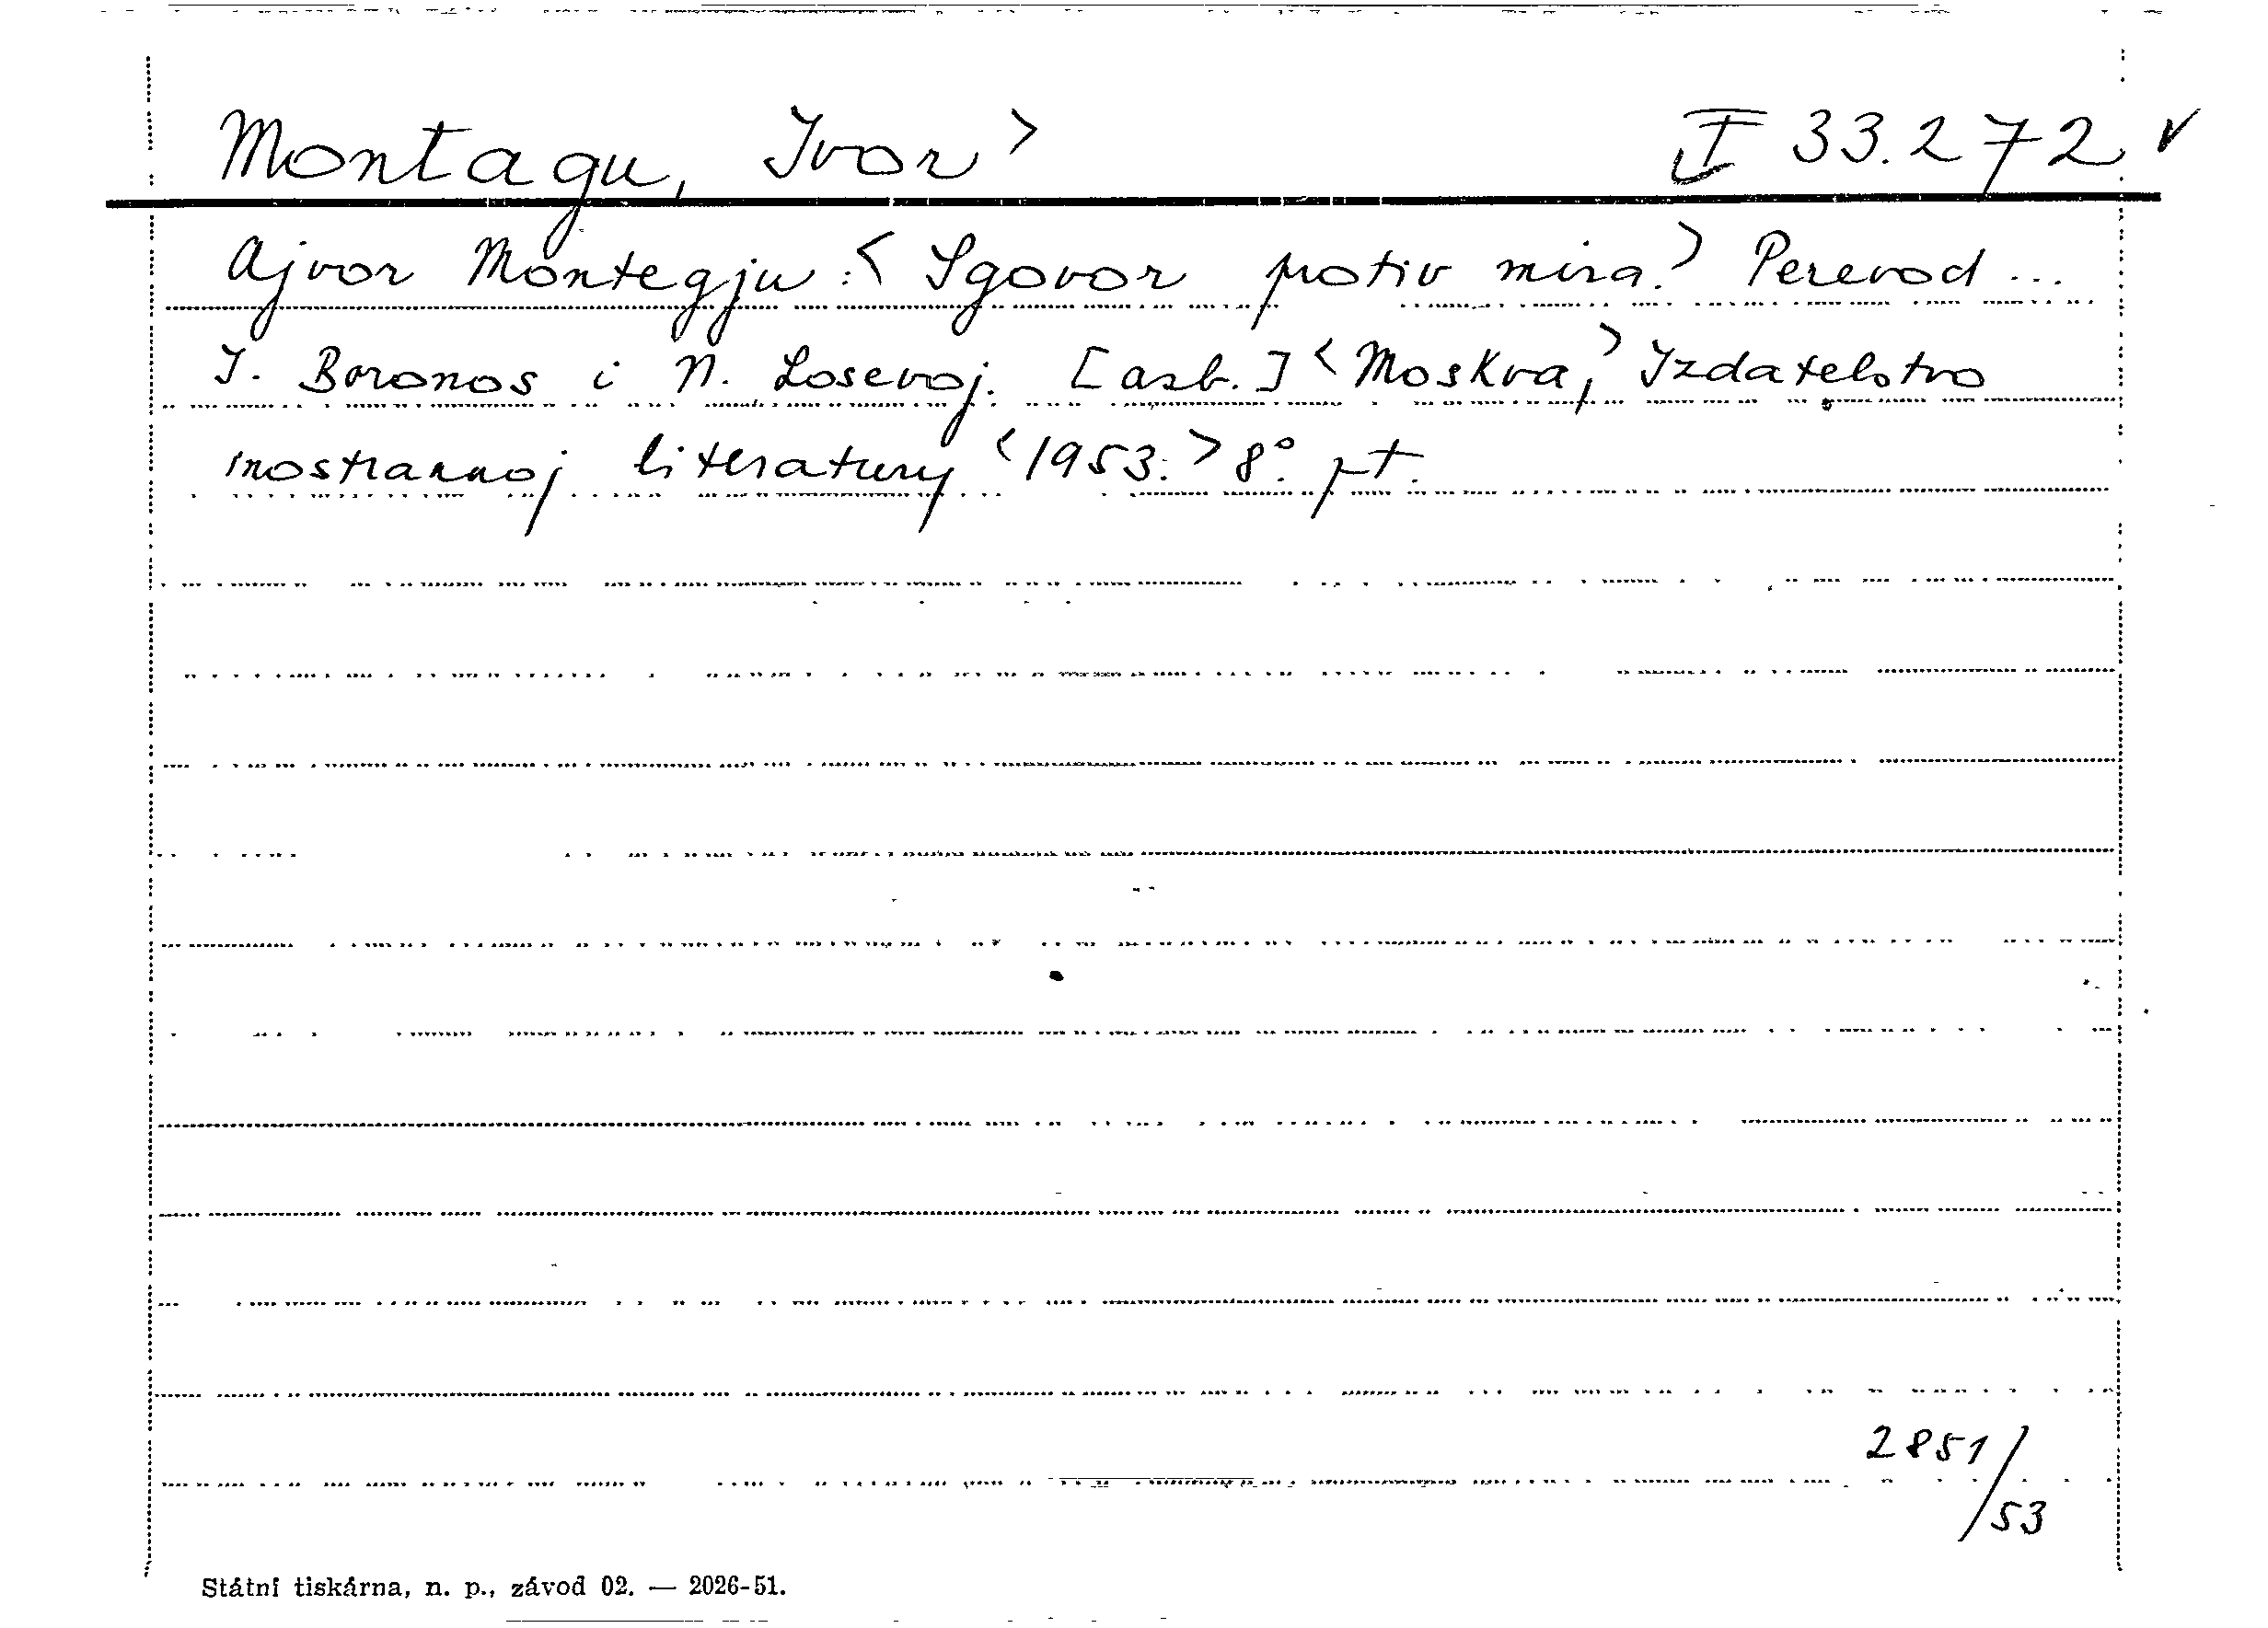 Montagu, Ivor> I 33.272 √
Ajvor Montegju:< Sgovor protiv mira.> Perevod ...
I. Boronos i N. Losevoj. [azb.] <Moskva,> Izdatelstvo
inostrannoj literatury <1953.> 8° pt.
2851/
53
Státní tiskárna, n. p., závod 02. — 2026-51.